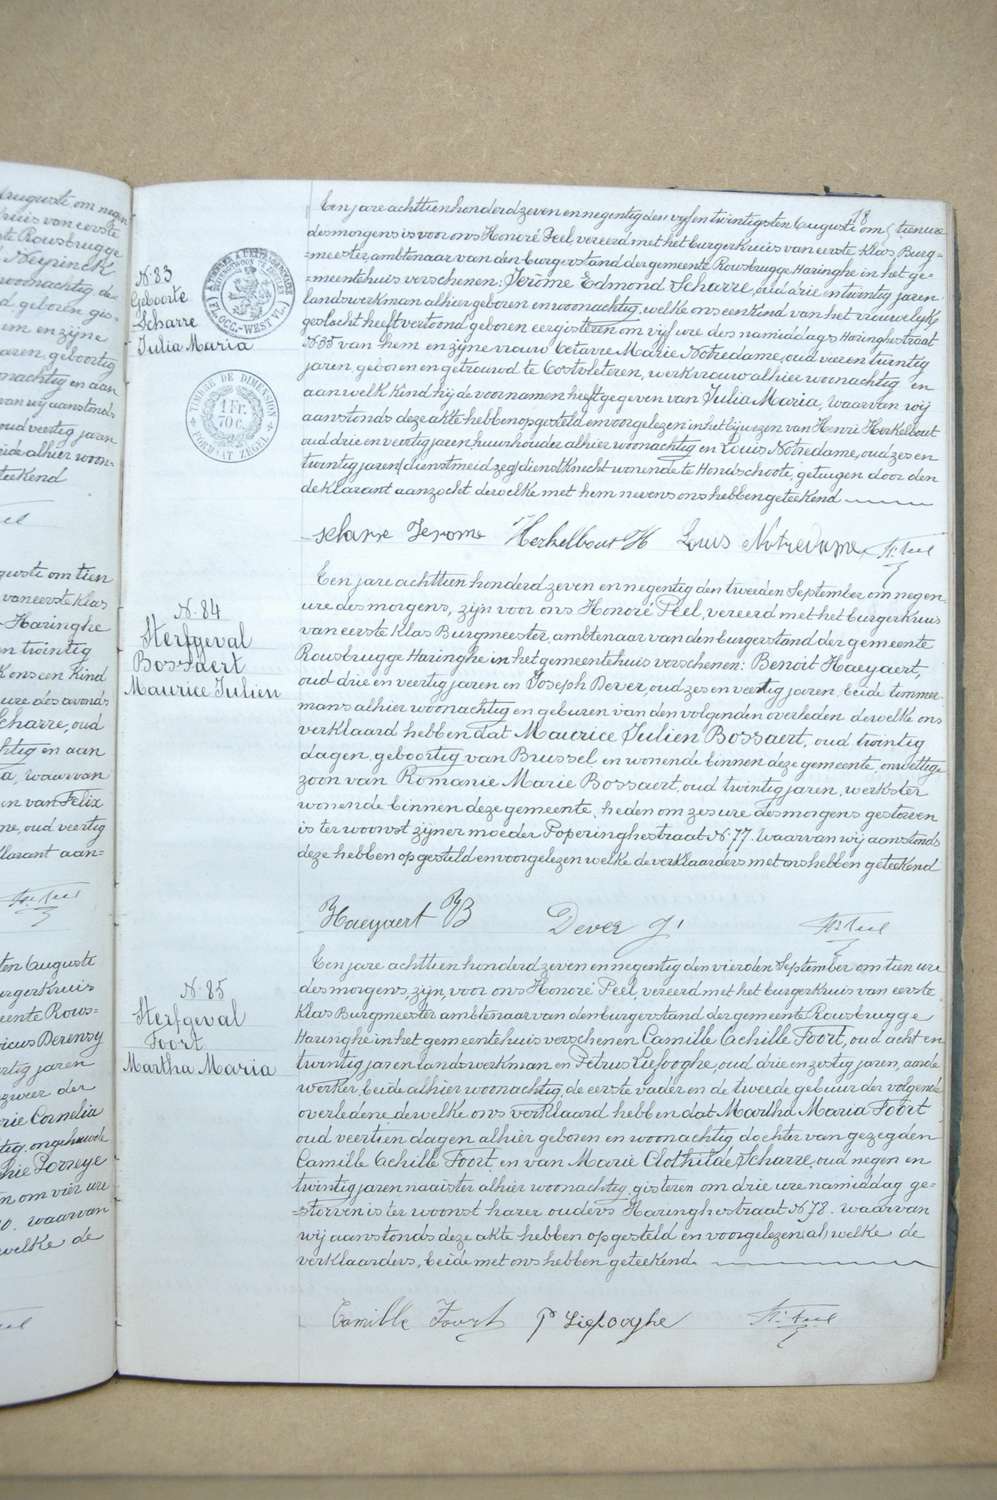 18
N. 83
Geboorte
Scharre
Julia Maria
TIMBRE DE DIMENSION
1 Fr.
70 c.
FORMAAT ZEGEL
Een jare achttien honderd zeven en negentig den vijf en twintigsten Auguste om tien ure
des morgens is voor ons Honoré Peel, vereerd met het burgerkruis van eerste Klas Burg-
=meester, ambtenaar van den burgerstand der gemeente Rousbrugge Haringhe in het ge-
=meentehuis verschenen: Jerôme Edmond Scharre, oud drie en twintig jaren
landswerkman alhier geboren en woonachtig, welke ons een kind van het vrouwelijk
geslacht heeft vertoond geboren eergisteren om vijf ure des namiddags Haringhestraat
N. 35 van hem en zijne vrouw Octavie Marie Notredame, oud vier en twintig
jaren geboren en getrouwd te Oostvleteren, werkvrouw alhier woonachtig en
aan welk kind hij de voornamen heeft gegeven van Julia Maria, waarvan wij
aanstonds deze akte hebben opgesteld en voorgelezen in het bijwezen van Henri Herkelbout
oud drie en veertig jaren, huurhouder alhier woonachtig en Louis Notredame, oud zes en
twintig jaren (dienstmeid zeg) dienstknecht wonende te Hondschoote, getuigen door den
deklarant aanzocht dewelke met hem nevens ons hebben geteekend
scharre Jerome Herkelbout H Louis Notredame Hr Peel
N. 84
Sterfgeval
Bossaert
Maurice Julien
Een jare achttien honderd zeven en negentig den tweeden September om negen
ure des morgens, zijn voor ons Honoré Peel, vereerd met het burgerkruis
van eerste Klas Burgmeester, ambtenaar van den burgerstand der gemeente
Rousbrugge Haringhe in het gemeentehuis verschenen: Benoit Haeyaert,
oud drie en veertig jaren en Joseph Dever, oud zes en veertig jaren, beide timmer-
mans alhier woonachtig en geburen van den volgenden overleden dewelke ons
verklaard hebben dat Maurice Julien Bossaert, oud twintig
dagen, geboortig van Brussel en wonende binnen deze gemeente, onwettige
zoon van Romanie Marie Bossaert, oud twintig jaren, werkster
wonende binnen deze gemeente, heden om zes ure des morgens gestorven
is ter woonst zijner moeder Poperinghestraat N. 77. Waarvan wij aanstonds
deze hebben opgesteld en voorgelezen welke de verklaarders met ons hebben geteekend
Haeyaert B Dever J. Hr Peel
N. 85
Sterfgeval
Foort
Martha Maria
Een jare achttien honderd zeven en negentig den vierden September om tien ure
des morgens, zijn, voor ons Honoré Peel, vereerd met het burgerkruis van eerste
Klas Burgmeester ambtenaar van den burgerstand der gemeente Rousbrugge
Haringhe in het gemeentehuis verschenen Camille Achille Foort, oud acht en
twintig jaren landswerkman en Petrus Liefooghe, oud drie en zestig jaren, aarde
werker, beide alhier woonachtig, de eerste vader en de tweede gebuur der volgende
overledene dewelke ons verklaard hebben dat Martha Maria Foort
oud veertien dagen alhier geboren en woonachtig dochter van gezegden
Camille Achille Foort, en van Marie Clothilde Scharre, oud negen en
twintig jaren naaister alhier woonachtig, gisteren om drie ure namiddag ge-
=storven is ter woonst harer ouders Haringhestraat N. 78. waarvan
wij aanstonds deze akte hebben opgesteld en voorgelezen welke de
verklaarders, beide met ons hebben geteekend.
Camille Foort P Liefooghe Hr Peel